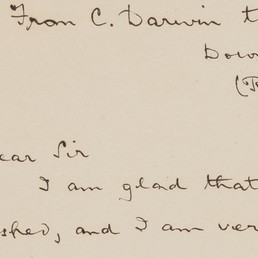 From C. Darwin t
Dow
(
ear Sir
I am glad that
shed, and I am ver